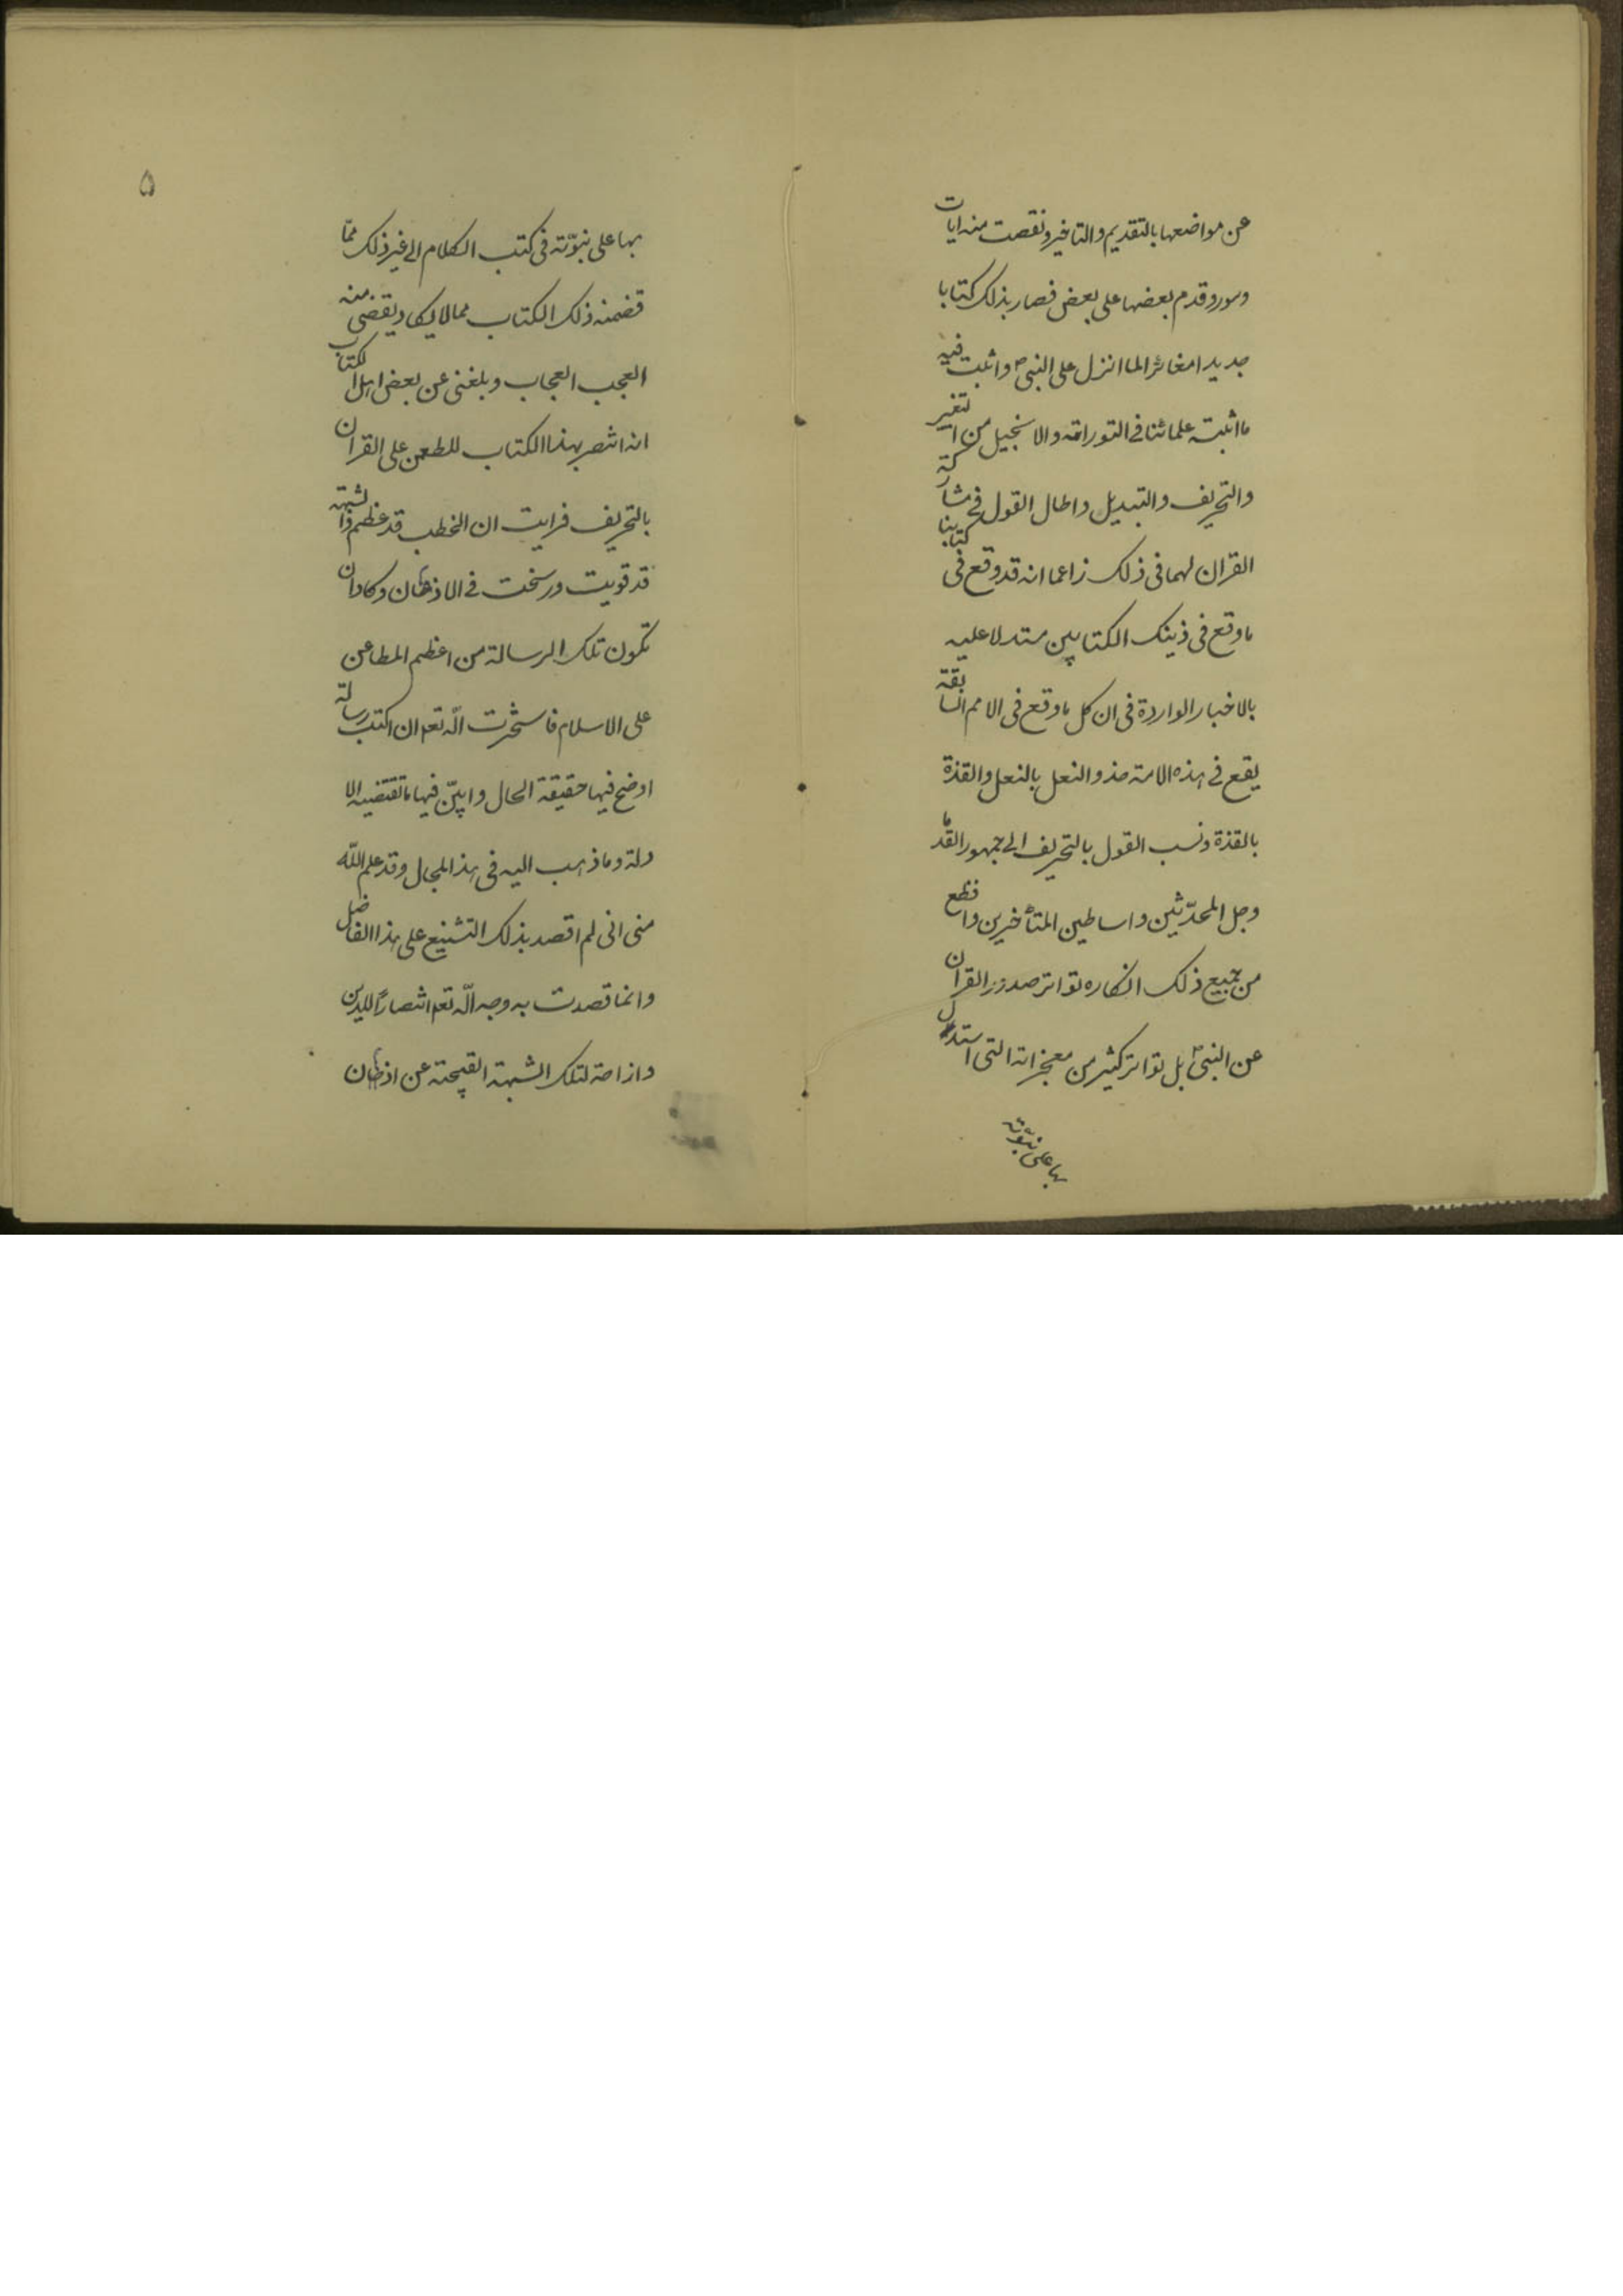 عن مواضعها بالتقديم والتاخير ونقصت منه ايات
وسور وقدم بعضها على بعض فصار بذلك كتابا
جديدا مغائرا لما انزل على النبي ص واثبت فيه
ما اثبته علمائنا في التوراة والانجيل من التغير
والتحريف والتبديل واطال القول في مشاركة
القران لهما في ذلك زاعما انه قد وقع في كتابنا
ما وقع في ذينك الكتابين مستدلا عليه
بالاخبار الواردة في ان كل ما وقع في الامم السابقة
يقع في هذه الامة حذو النعل بالنعل والقذة
بالقذة ونسب القول بالتحريف الى جمهور القدما
وجل المحدّثين واساطين المتأخرين وافظع
من جميع ذلك انكاره تواتر صدور القران
عن النبي ص بل تواتر كثير من معجزاته التي استدل
بها على نبوّته
۵
بها على نبوّته في كتب الكلام الى غير ذلك ممّا
تضمنه ذلك الكتاب مما لا يكاد يقضى منه
العجب العجاب وبلغني عن بعض اهل الكتاب
انه انتصر بهذا الكتاب للطعن على القران
بالتحريف فرايت ان الخطب قد عظم وا لشبهة
قد قويت ورسخت في الاذهان وكاد ان
تكون تلك الرسالة من اعظم المطاعن
على الاسلام فاستخرت الله تعم ان اكتب رسالة
اوضح فيها حقيقة الحال وابيّن فيها ما تقتضيه الا
دلة وما ذهب اليه في هذ المجال وقد علم اللّه
منى انى لم اقصد بذلك التشنيع على هذا الفاضل
وانما قصدت به وجه اللّه تعم انتصارًا للدين
وازاحة لتلك الشبهة القبيحة عن اذهان